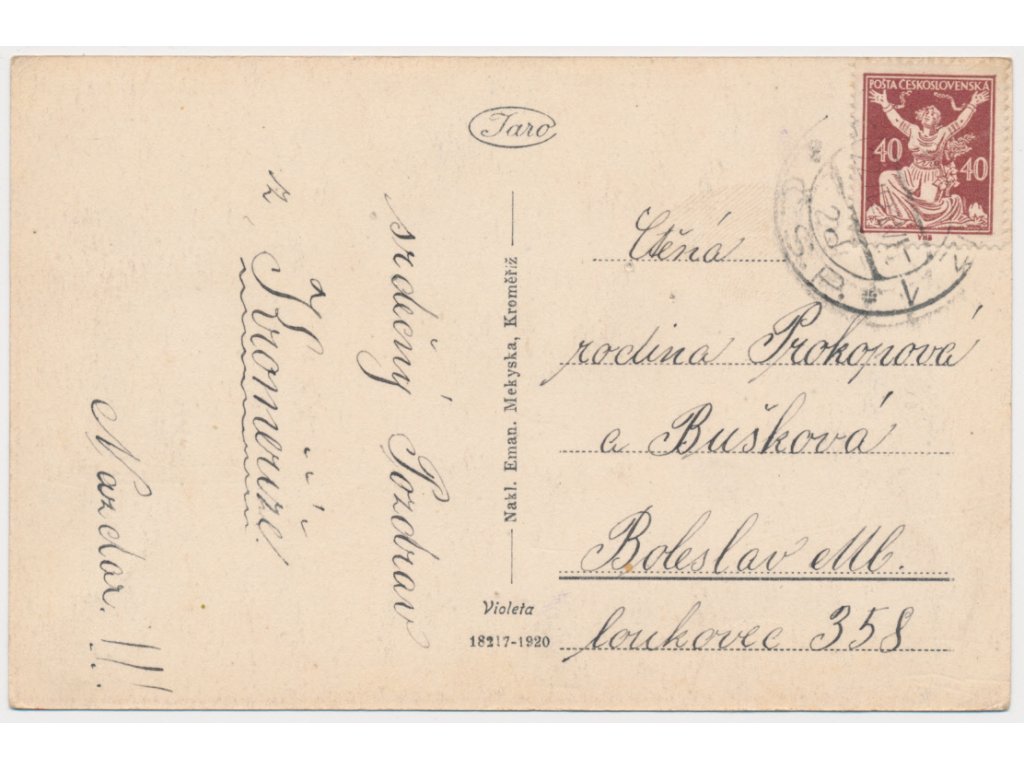 srdečný Pozdrav
z Kroměříže.
Nazdar.!!!
Jaro
Nakl. Eman. Mekyska, Kroměříž
Violeta
18217-1920
POŠTA ČESKOSLOVENSKÁ
40 40
Ctěná
rodina Prokopová
a Bušková
Boleslav Ml.
loukovec 358